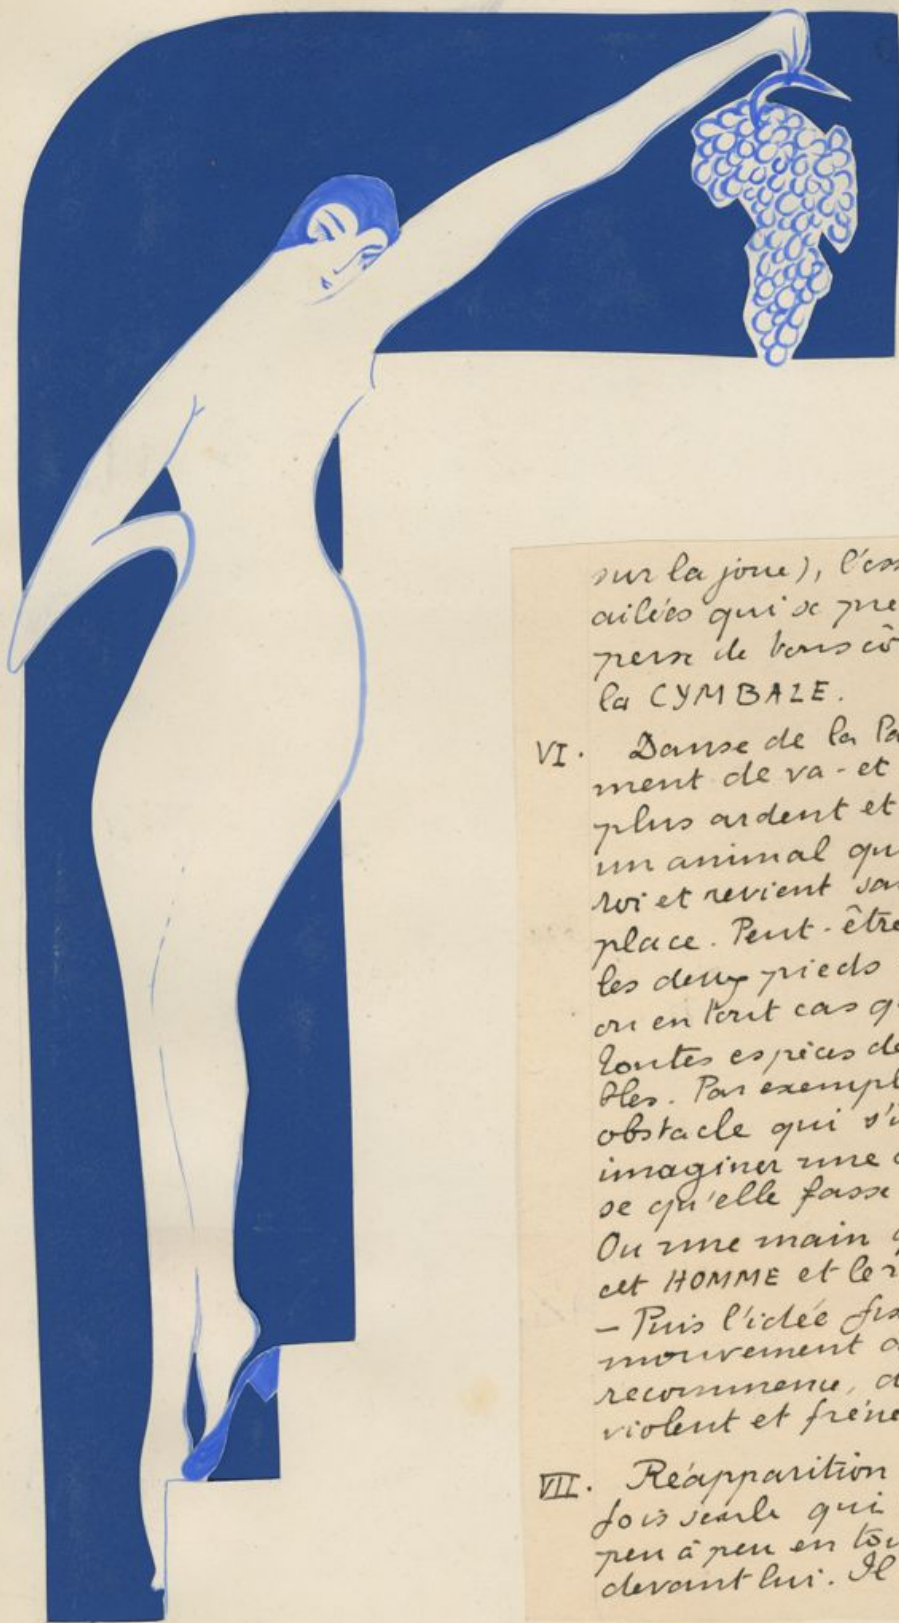 sur la joue), l'ess
ailées qui se pre
perse de tous cô
la CYMBALE.
VI. Danse de la Pa
ment de va-et
plus ardent et
un animal qu
roi et revient sa
place. Peut-être
les deux pieds
ou en tout cas q
toutes espèces de
bles. Par exempl
obstacle qui s'i
imaginer une
se qu'elle fasse
Ou une main
cet HOMME et le r
– Puis l'idée fix
mouvement d
recommence, d
violent et fréné
VII. Réapparition
fois seule qui
peu à peu en tou
devant lui. Il